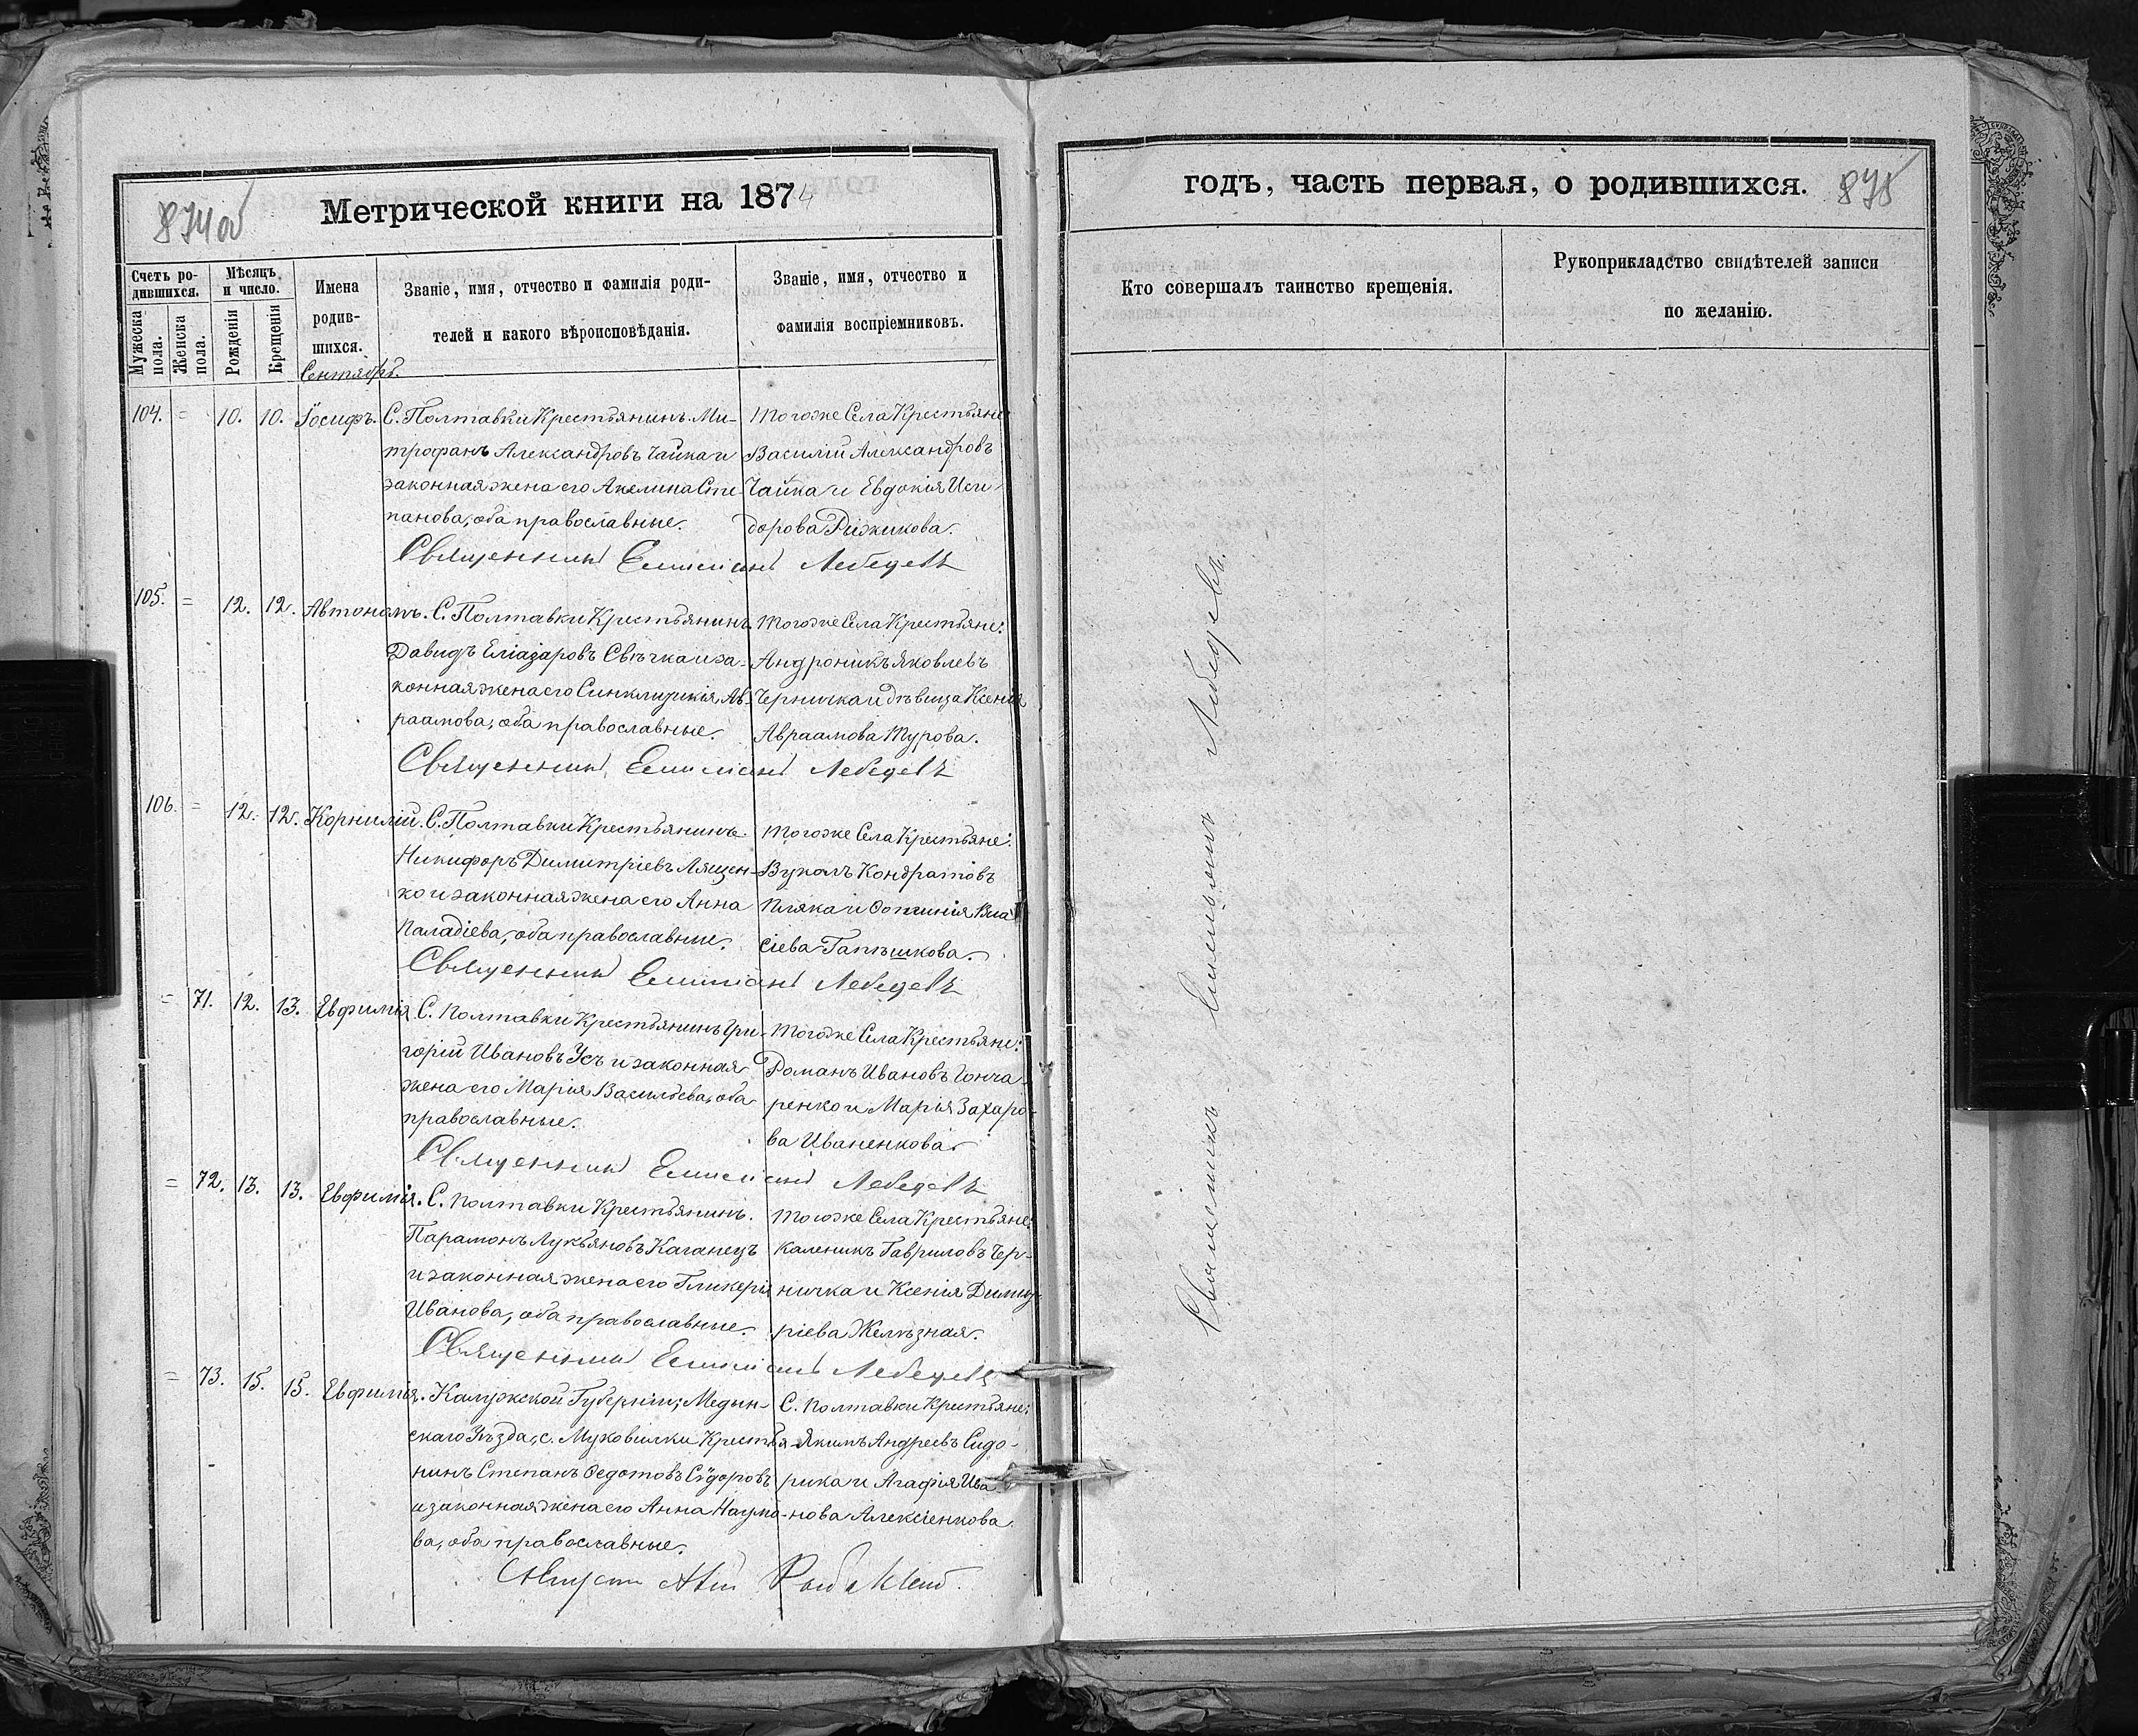 874об
Метрической книги на 1874
Счетъ ро-
дившихся.
Мѣсяцъ
и число.
Мужеска
пола.
Женска
пола.
Рожденія
Крещенія
Имена
родив-
шихся.
Званіе, имя, отчество и фамилія роди-
телей и какого вѣроисповѣданія.
Званіе, имя, отчество и
фамилія воспріемниковъ.
Сентябрь.
104. = 10. 10. Іосифъ. С. Полтавки Крестьянинъ Ми-
трофанъ Александровъ Чайка и
законная жена его Акелина Сте-
панова, оба православные.
Тогоже Села Крестьяне
Василій Александровъ
Чайка и Евдокія Иси-
дорова Рижикова.
Священникъ Емиліанъ Лебедевъ
105. = 12. 12. Автономъ. С. Полтавки Крестьянинъ
Давидъ Еліазаровъ Свѣчка и за-
конная жена его Синклитикія Ав-
раамова, оба православные.
Тогоже Села Крестьяне:
Андроникъ Яковлевъ
Черничка и дѣвица Ксенія
Авраамова Турова.
Священникъ Емиліанъ Лебедевъ
106. = 12. 12. Корнилій. С. Полтавки Крестьянинъ
Никифоръ Димитріевъ Лящен-
ко и законная жена его Анна
Паладіева, оба православные.
Тогоже Села Крестьяне:
Вуколъ Кондратовъ
Пляка и Фотинія Вла
сіева Гапѣшкова.
Священникъ Емиліанъ Лебедевъ
= 71. 12. 13. Евфимія С. Полтавки Крестьянинъ Гри-
горій Ивановъ Усъ и законная
жена его Марія Васильева, оба
православные.
Тогоже Села Крестьяне:
Романъ Ивановъ Гонча-
ренко и Марія Захаро-
ва Иваненкова.
Священникъ Емиліанъ Лебедевъ
= 72. 13. 13. Евфимія. С. Полтавки Крестьянинъ
Парамонъ Лукьяновъ Каганецъ
и законная жена его Гликерія
Иванова, оба православные.
Тогоже Села Крестьяне:
Каленикъ Гавриловъ Чер-
ничка и Ксенія Димит
ріева Желѣзная.
Священникъ Емиліанъ Лебедевъ
= 73. 15. 15. Евфимія. Калужской Губерніи, Медын-
скаго Уѣзда, с. Муковилки Крестья-
нинъ Степанъ Федотовъ Сидоровъ
и законная жена его Анна Наумо-
ва, оба православные.
С. Полтавки Крестьяне:
Якимъ Андреевъ Сидо-
рика и Агафія Ива-
нова Алексіенкова.
годъ, часть первая, о родившихся.
875
Кто совершалъ таинство крещенія.
Рукоприкладство свидѣтелей записи
по желанію.
Священникъ Емиліанъ Лебедевъ.